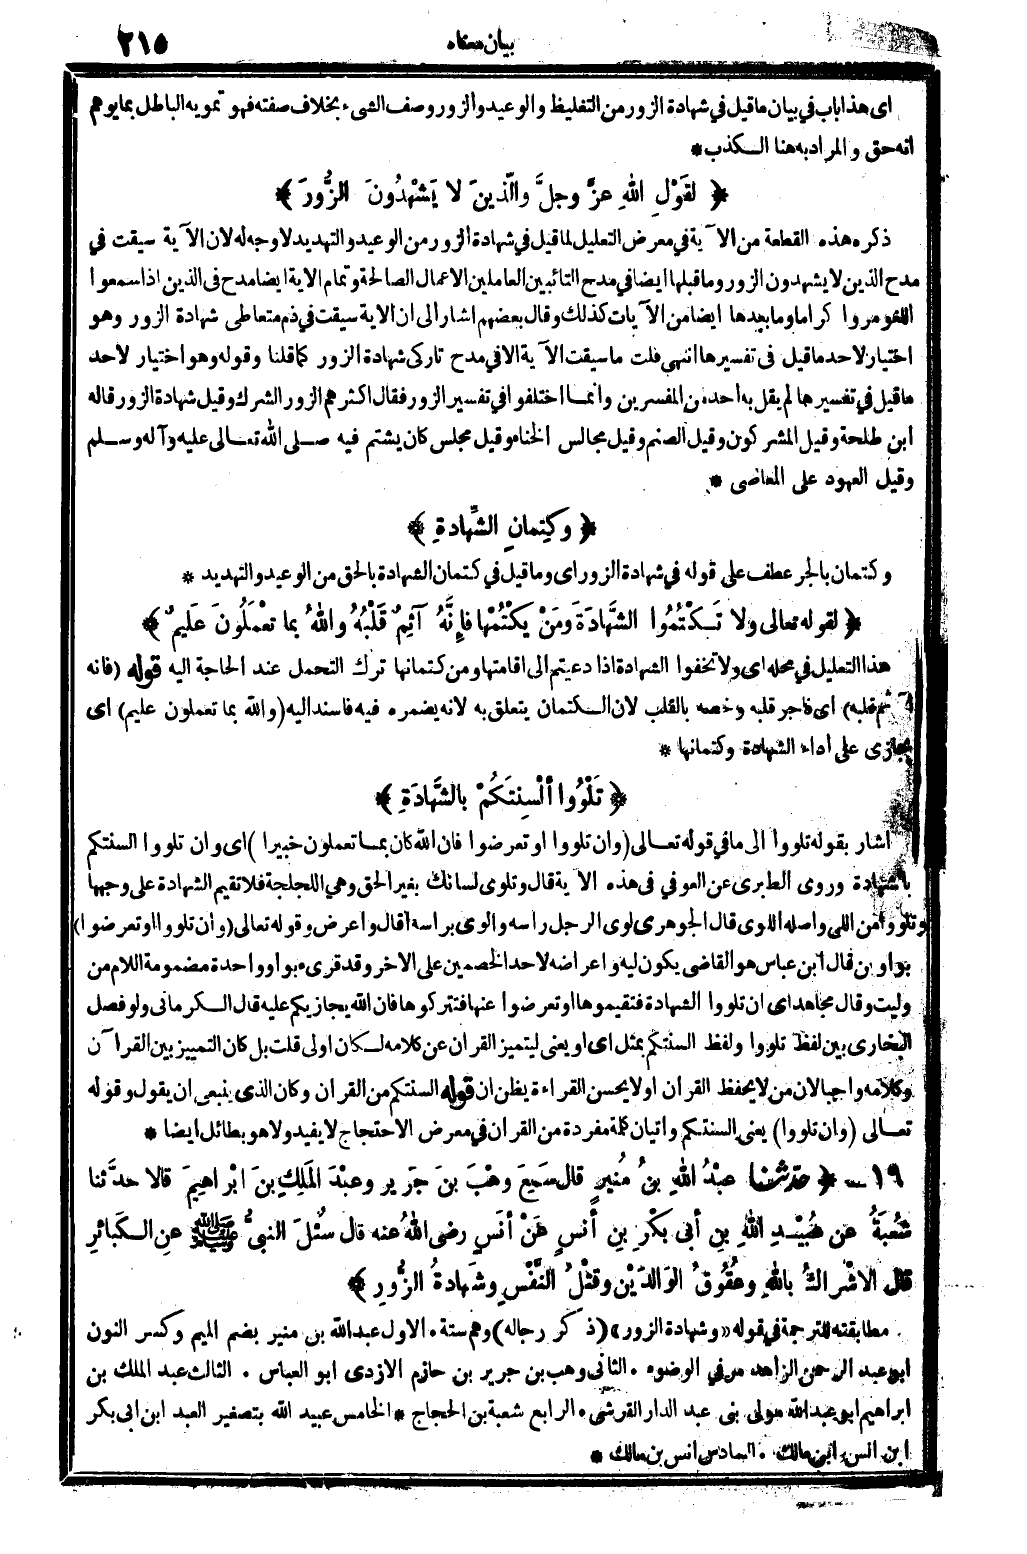 بيان معناه
٢١٥
اى هذا باب في بيان ما قيل في شهادة الزور من التغليظ والوعيد والزور وصف الشىء بخلاف صفته فهو تمويه الباطل بما يوهم
انه حق والمراد به هنا الكذب *
﴿ لِقَوْلِ اللهِ عزَّ وجلَّ والَّذِينَ لا يَشْهَدُونَ الزُّورَ ﴾
ذكره هذه القطعة من الآية في معرض التعليل لما قيل في شهادة الزور من الوعيد والتهديد لا وجه له لان الآية سيقت في
مدح الذين لا يشهدون الزور وما قبلها ايضا في مدح التائبين العاملين الاعمال الصالحة وتمام الاية ايضا مدح فى الذين اذا سمعوا
اللغو مروا كراما وما بعدها ايضا من الآيات كذلك وقال بعضهم اشار الى ان الاية سيقت في ذم متعاطى شهادة الزور وهو
اختيار لاحد ما قيل فى تفسيرها انتهى قلت ما سيقت الآية الا في مدح تاركى شهادة الزور كما قلنا وقوله وهو اختيار لاحد
ما قيل في تفسيرها لم يقل به أحد من المفسرين وانما اختلفوا في تفسير الزور فقال اكثرهم الزور الشرك وقيل شهادة الزور قاله
ابن طلحة وقيل المشركون وقيل الصنم وقيل مجالس الخناء وقيل مجلس كان يشتم فيه صلى الله تعالى عليه وآله وسلم
وقيل العهود على المعاصى *
﴿ وكِتمانِ الشَّهادةِ ﴾
وكتمان بالجر عطف على قوله في شهادة الزور اى وما قيل في كتمان الشهادة بالحق من الوعيد والتهديد *
﴿ لقوله تعالى ولا تَكْتُمُوا الشَّهادَةَ ومَنْ يَكْتُمْها فإِنَّهُ آثِمٌ قَلْبُهُ واللهُ بما تَعْمَلُونَ عَلِيمٌ ﴾
هذا التعليل في محله اى ولا تخفوا الشهادة اذا دعيتم الى اقامتها ومن كتمانها ترك التحمل عند الحاجة اليه قوله (فانه
آثم قلبه) اى فاجر قلبه وخصه بالقلب لان الكتمان يتعلق به لانه يضمره فيه فاسند اليه (والله بما تعملون عليم) اى
يجازى على أداء الشهادة وكتمانها *
﴿ تَلْوُوا ألْسِنَتَكُمْ بالشَّهَادَةِ ﴾
اشار بقوله تلووا الى ما في قوله تعالى (وان تلووا او تعرضوا فان الله كان بما تعملون خبيرا) اى وان تلووا السنتكم
بالشهادة وروى الطبرى عن العوفي فى هذه الاية قال وتلوى لسانك بغير الحق وهي اللجلجة فلا تقيم الشهادة على وجهها
وتلووا من اللى واصله اللوى قال الجوهرى لوى الرجل راسه والوى براسه اقال واعرض وقوله تعالى (وان تلووا او تعرضوا)
بواوين قال ابن عباس هو القاضى يكون ليه واعراضه لاحد الخصمين على الاخر وقد قرىء بواو واحدة مضمومة اللام من
وليت وقال مجاهد اى ان تلووا الشهادة فتقيموها او تعرضوا عنها فتتركوها فان الله يجازيكم عليه قال الكرمانى ولو فصل
البخارى بين لفظ تلووا ولفظ السنتكم بمثل اى او يعنى ليتميز القران عن كلامه لكان اولى قلت بل كان التمييز بين القرآن
وكلامه واجبا لان من لا يحفظ القران اولا يحسن القراءة يظن ان قوله السنتكم من القران وكان الذى ينبغى ان يقول وقوله
تعالى (وان تلووا) يعنى السنتكم واتيان كلمة مفردة من القران في معرض الاحتجاج لا يفيد ولا هو بطائل ايضا *
١٩ ـ ﴿ حدثنا عبْدُ اللهِ بنُ مُنيرٍ قال سَمِعَ وَهْبَ بنَ جَرِيرٍ وعبْدَ المَلِكِ بنَ ابْراهِيمَ قالا حدَّثنا
شُعْبَةُ عن عُبَيْدِ اللهِ بنِ أبى بَكْرِ بنِ أنَسٍ عَنْ أنَسٍ رضى اللهُ عنه قال سُئِلَ النبىُّ ﷺ عنِ الكَبائرِ
قال الاشْراكُ باللهِ وعُقُوقُ الوَالِدَيْنِ وقَتْلُ النَّفْسِ وشَهادَةُ الزُّورِ ﴾
مطابقته للترجمة في قوله «وشهادة الزور» (ذكر رجاله) وهم ستة . الاول عبد الله بن منير بضم الميم وكسر النون
ابو عبد الرحمن الزاهد مر في الوضوء . الثانى وهب بن جرير بن حازم الازدى ابو العباس . الثالث عبد الملك بن
ابراهيم ابو عبد الله مولى بنى عبد الدار القرشى . الرابع شعبة بن الحجاج * الخامس عبيد الله بتصغير العبد ابن ابى بكر
ابن انس ابن مالك . السادس انس بن مالك *